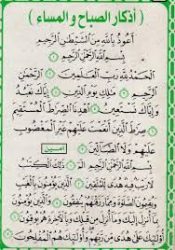 ( أذكار الصباح و المساء )
أعوذ بالله من الشيطن الرجيم
بسم الله الرحمن الرحيم
الحمد لله رب العلمين الرحمن
الرحيم ملك يوم الدين إياك نعبد
وإياك نستعين اهدنا الصرط المستقيم
صرط الذين أنعمت عليهم غير المغضوب
عليهم ولا الضالين آمين
بسم الله الرحمن الرحيم الم ذلك الكتب
لا ريب فيه هدى للمتقين الذين يؤمنون بالغيب
ويقيمون الصلوة ومما رزقنهم ينفقون والذين يؤمنون
بما أنزل إليك وما أنزل من قبلك وبالأخرة هم يوقنون
أولئك على هدى من ربهم وأولئك هم المفلحون